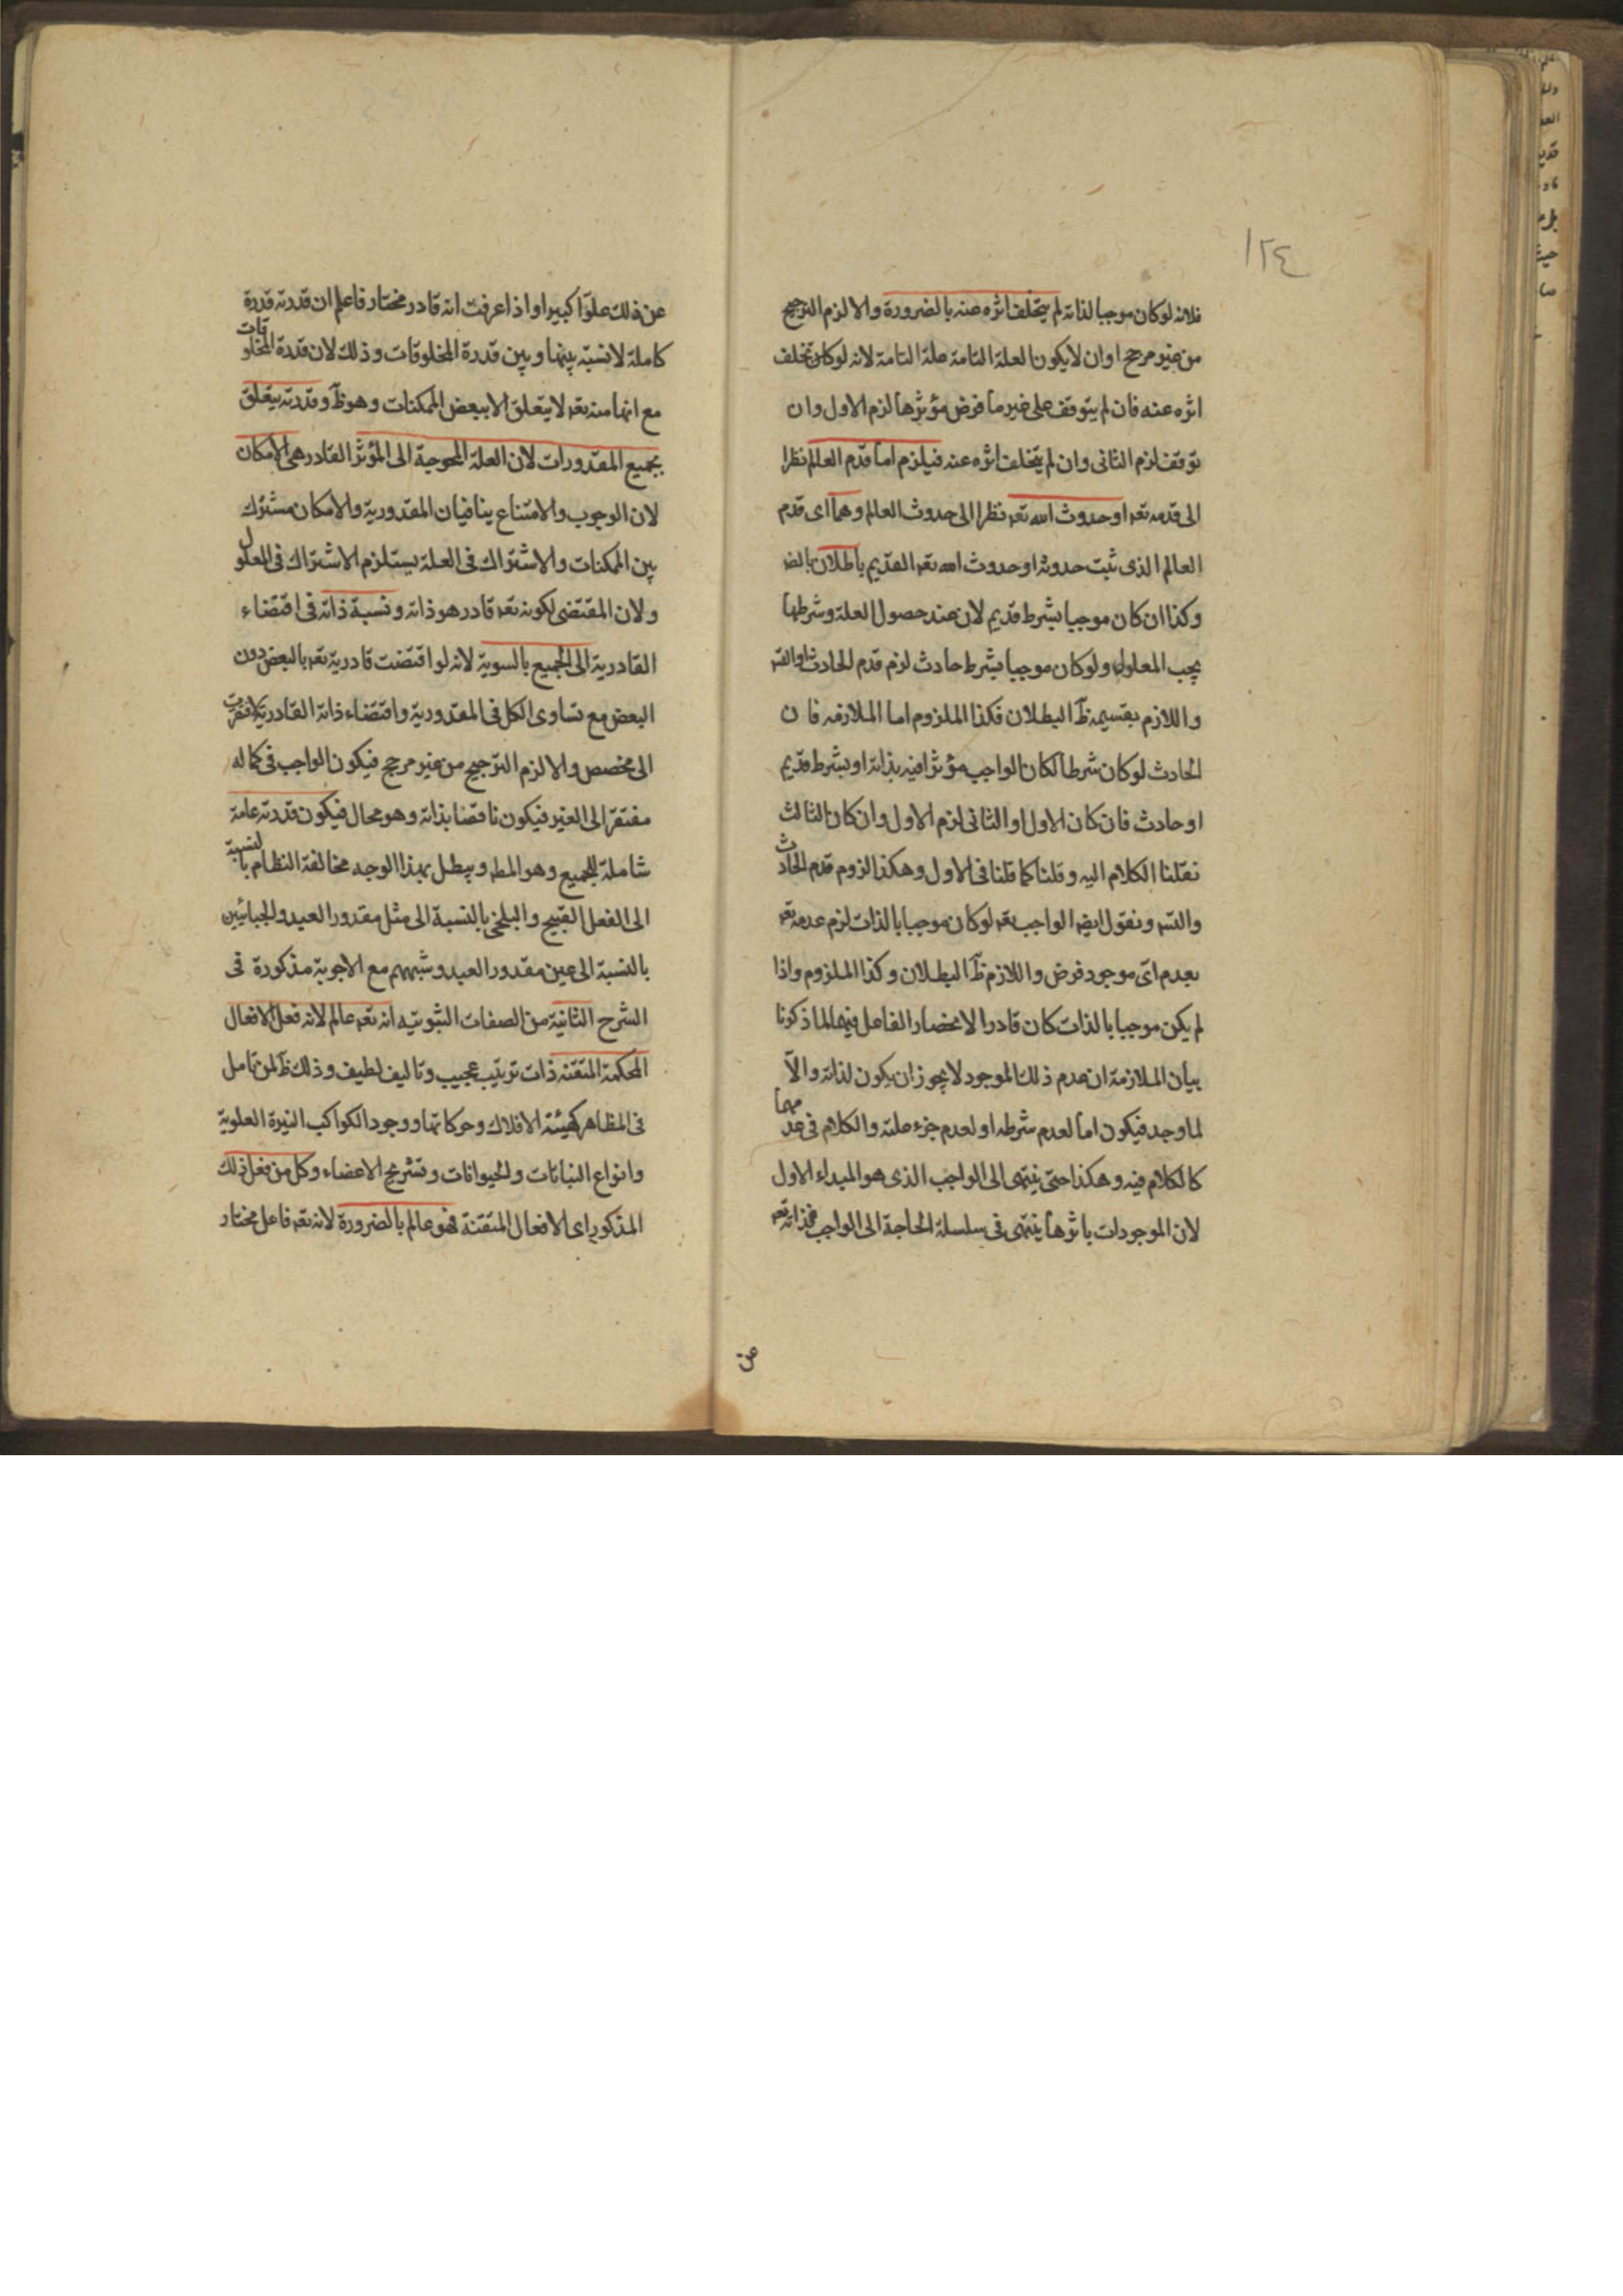 ١٢٤
فلانه لوكان موجبا لذاته لم يتخلف اثره عنه بالضرورة والا لزم الترجيح
من غير مرجح اوان لايكون العلة التامة علة التامة لانه لوكان تخلف
اثره عنه فان لم يتوقف على غير ما فرض مؤثرها لزم الاول وان
توقف لزم الثانى وان لم يتخلف اثره عنه فيلزم اما قدم العالم نظرا
الى قدمه تعه او حدوث الله تعه نظرا الى حدوث العالم وهما اى قدم
العالم الذى ثبت حدوثه او حدوث الله تعه القديم باطلان بالضه
وكذا ان كان موجبا بشرط قديم لان عند حصول العلة وشرطها
يجب المعلول ولو كان موجبا بشرط حادث لزم قدم الحادث او التسه
واللازم بقسيمه ظآ البطلان فكذا الملزوم اما الملازمه فان
الحادث لوكان شرطا لكان الواجب مؤثرا فيه بذاته او بشرط قديم
او حادث فان كان الاول او الثانى لزم الاول وان كان الثالث
نقلنا الكلام اليه وقلنا كما قلنا فى الاول وهكذا لزوم قدم الحادث
والتسه ونقول ايضه الواجب تعه لوكان موجبا بالذات لزم عدمه تعه
بعدم اىّ موجود فرض واللازم ظآ البطلان وكذا الملزوم واذا
لم يكن موجبا بالذات كان قادرا لانحصار الفاعل فيهما لما ذكرنا
بيان الملازمة ان عدم ذلك الموجود لا يجوز ان يكون لذاته والآ
لما وجد فيكون اما لعدم شرطه او لعدم جزء علته والكلام فى عدمهما
كالكلام فيه وهكذا حتى ينتهى الى الواجب الذى هو المبداء الاول
لان الموجودات باثرها ينتهى فى سلسلة الحاجة الى الواجب فذاته تعه
عن
عن ذلك علوّا كبيرا واذا عرفت انه قادر مختار فاعلم ان قدرته قدرة
كاملة لانسبة بينها وبين قدرة المخلوقات وذلك لان قدرة المخلوقات
مع انها منه تعه لا يتعلق الا ببعض الممكنات وهو ظآ وقدرته يتعلق
بجميع المقدورات لان العلة المحوجة الى المؤثر القادر هى الامكان
لان الوجوب والامتناع ينافيان المقدورية والامكان مشترك
بين الممكنات والاشتراك فى العلة يستلزم الاشتراك فى المعلول
ولان المقتضى لكونه تعه قادر هو ذاته ونسبة ذاته فى اقتضاء
القادرية الى الجميع بالسوية لانه لو اقتضت قادرية تعه بالبعض دون
البعض مع تساوى الكل فى المقدورية واقتضاء ذاته القادرية لافتقرت
الى مخصص والا لزم الترجيح من غير مرجح فيكون الواجب فى كماله
مفتقرا الى الغير فيكون ناقصا بذاته وهو محال فيكون قدرته عامة
شاملة للجميع وهو المطه ويبطل بهذا الوجه مخالفة النظام بالنسبة
الى الفعل القبيح والبلخى بالنسبة الى مثل مقدور العبد والجبائيين
بالنسبة الى عين مقدور العبد وشبههم مع الاجوبة مذكورة فى
الشرح الثانية من الصفات الثبوتيه انه تعه عالم لانه فعل الافعال
المحكمة المتقنه ذات ترتيب عجيب وتاليف لطيف وذلك ظآ لمن تامل
فى المظاهر كهيئة الافلاك وحركاتها ووجود الكواكب النيرة العلوية
وانواع النباتات والحيوانات وتشريح الاعضاء وكل من فعل ذلك
المذكور اى الافعال المتقنة فهو عالم بالضرورة لانه تعه فاعل مختار